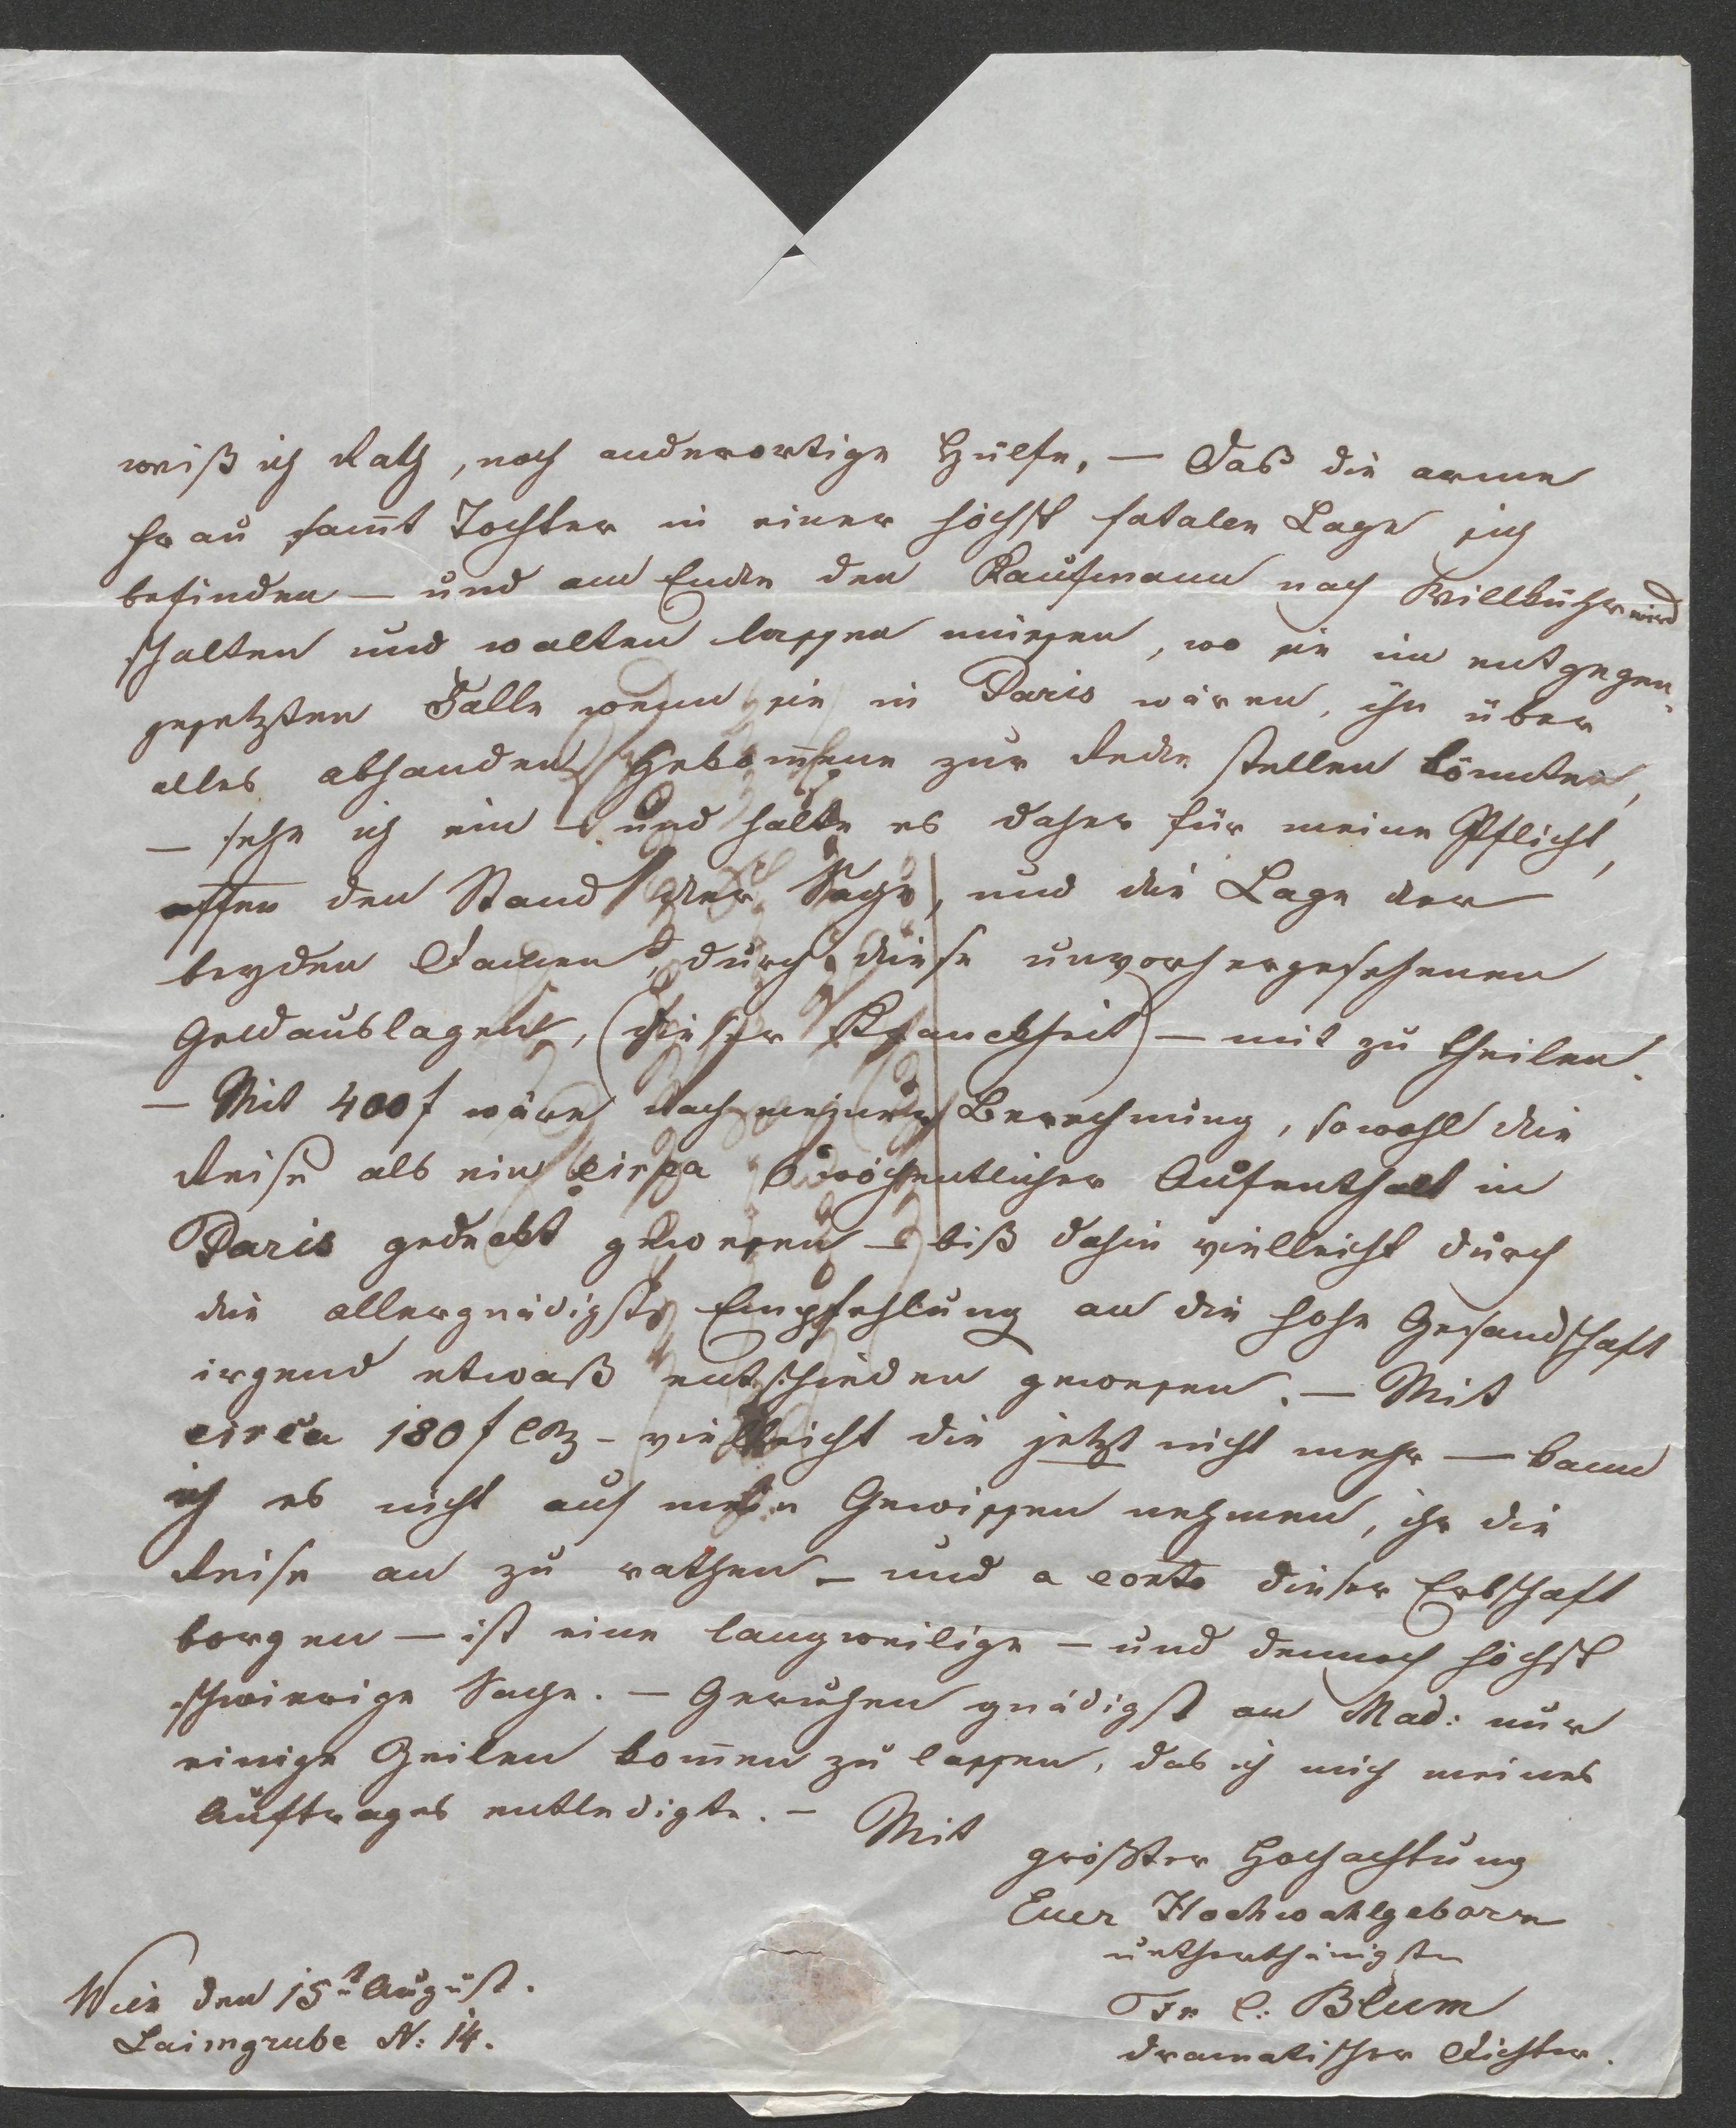 weiß ich Rath, noch anderortige Hülfe. — Daß die arme
Frau sam̄t Tochter in einer höchst fatalen Lage sich
befinden — und am Ende den Kaufmann nach Willkühr wird
schalten und walten lassen müssen, wo sie im entgegen-
gesetzten Falle wenn sie in Paris wären, ihn über
alles abhanden Gekom̄ene zur Rede stellen könnten,
— sehe ich ein — und halte es daher für meine Pflicht,
offen den Stand der Sache, und die Lage der
beyden Damen, durch diese unvorhergesehenen
Geldauslagen, (dieser Kranckheit) — mit zu theilen.
— Mit 400 f wäre nach meiner Berechnung, sowohl die
Reise als ein circa 6 wöchentlicher Aufenthalt in
Paris gedeckt gewesen — biß dahin vielleicht durch
die allergnädigste Empfehlung an die hohe Gesandschaft
irgend etwaß entschieden gewesen. — Mit
circa 180 f CM — vielleicht die jetzt nicht mehr — kann
ich es nicht auf mein Gewissen nehmen, ihr die
Reise an zu rathen — und a conto dieser Erbschaft
borgen — ist eine langweilige — und dennoch höchst
schwierige Sache. — Geruhen gnädigst an Mad: nur
einige Zeilen kom̄en zu lassen, das ich mich meines
Auftrages entledigte. — Mit
größter Hochachtung
Euer Hochwohlgeborn
unterthänigster
Fr C: Blum
dramatischer Dichter.
Wien den 15t August.
Laimgrube N: 14.